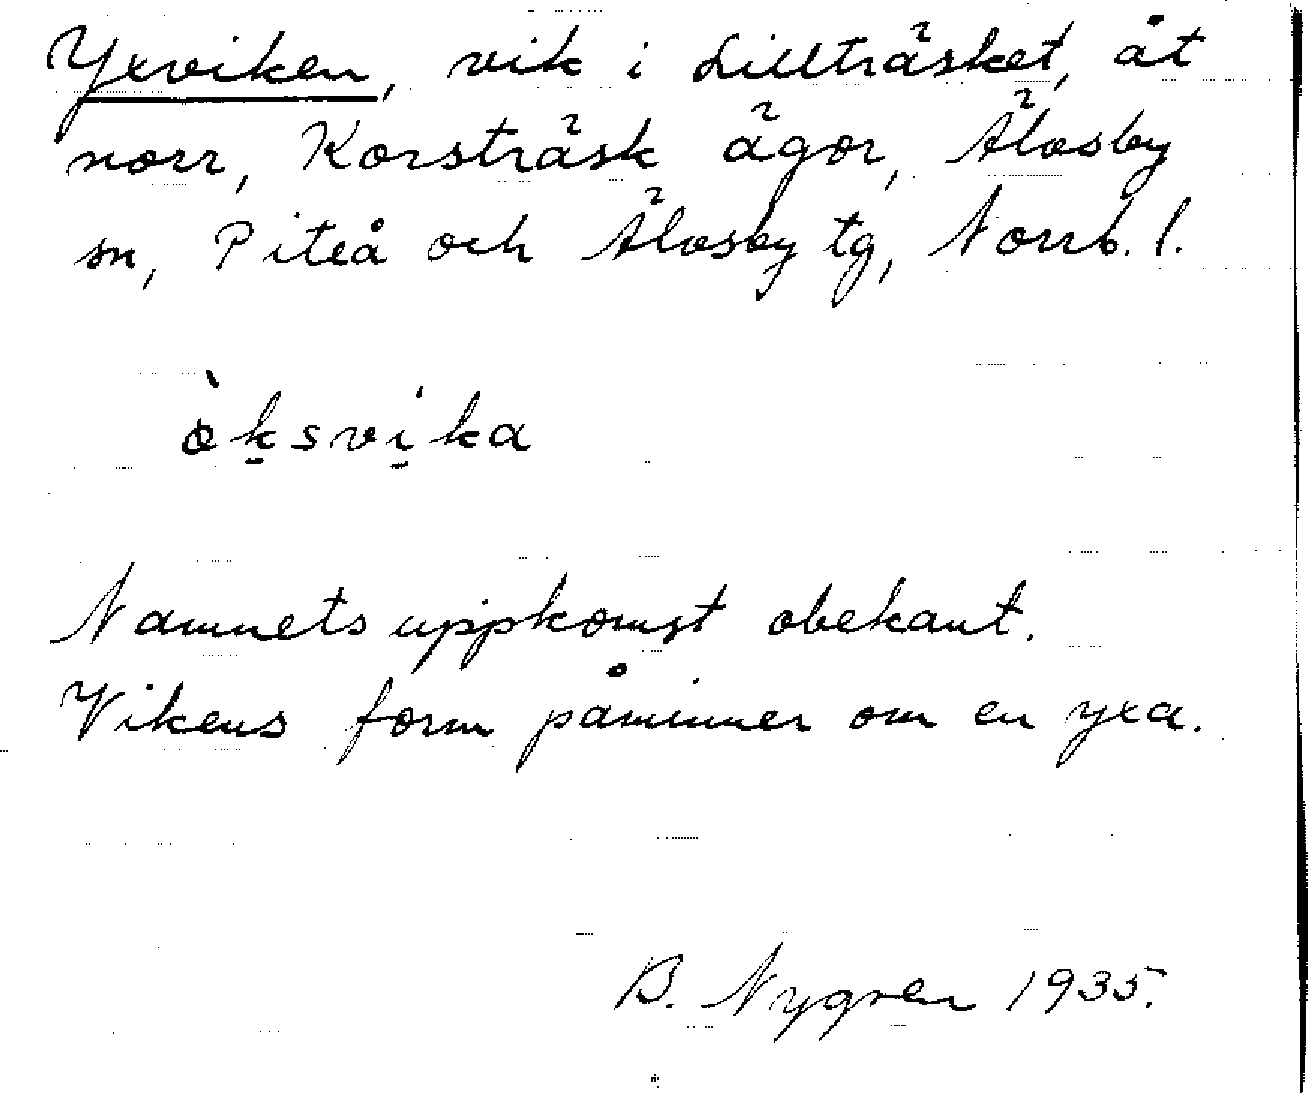 Yxviken, vik i Lillträsket, åt
norr, Korsträsk ägor, Älvsby
sn, Piteå och Älvsby tg, Norrb. l.
ø̀k̠svi̠ka
Namnets uppkomst obekant.
Vikens form påminner om en yxa.
B. Nygren 1935.